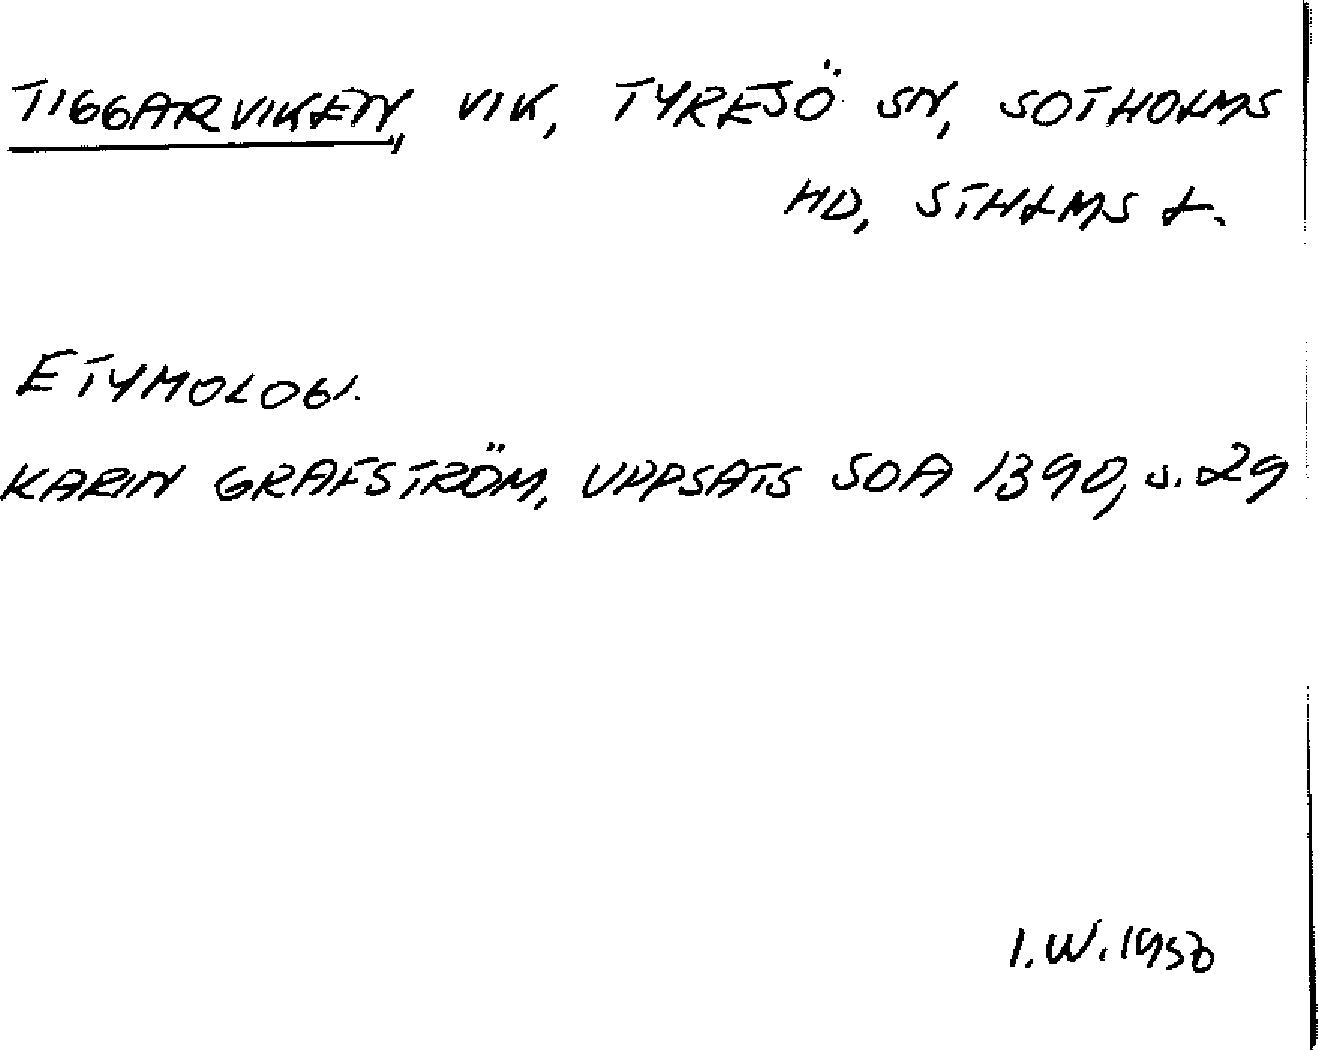 TIGGARVIKEN, VIK, TYRESÖ SN, SOTHOLMS
HD, STHLMS L.
ETYMOLOGI.
KARIN GRAFSTRÖM, UPPSATS SOA 1390, s. 29
I.W.